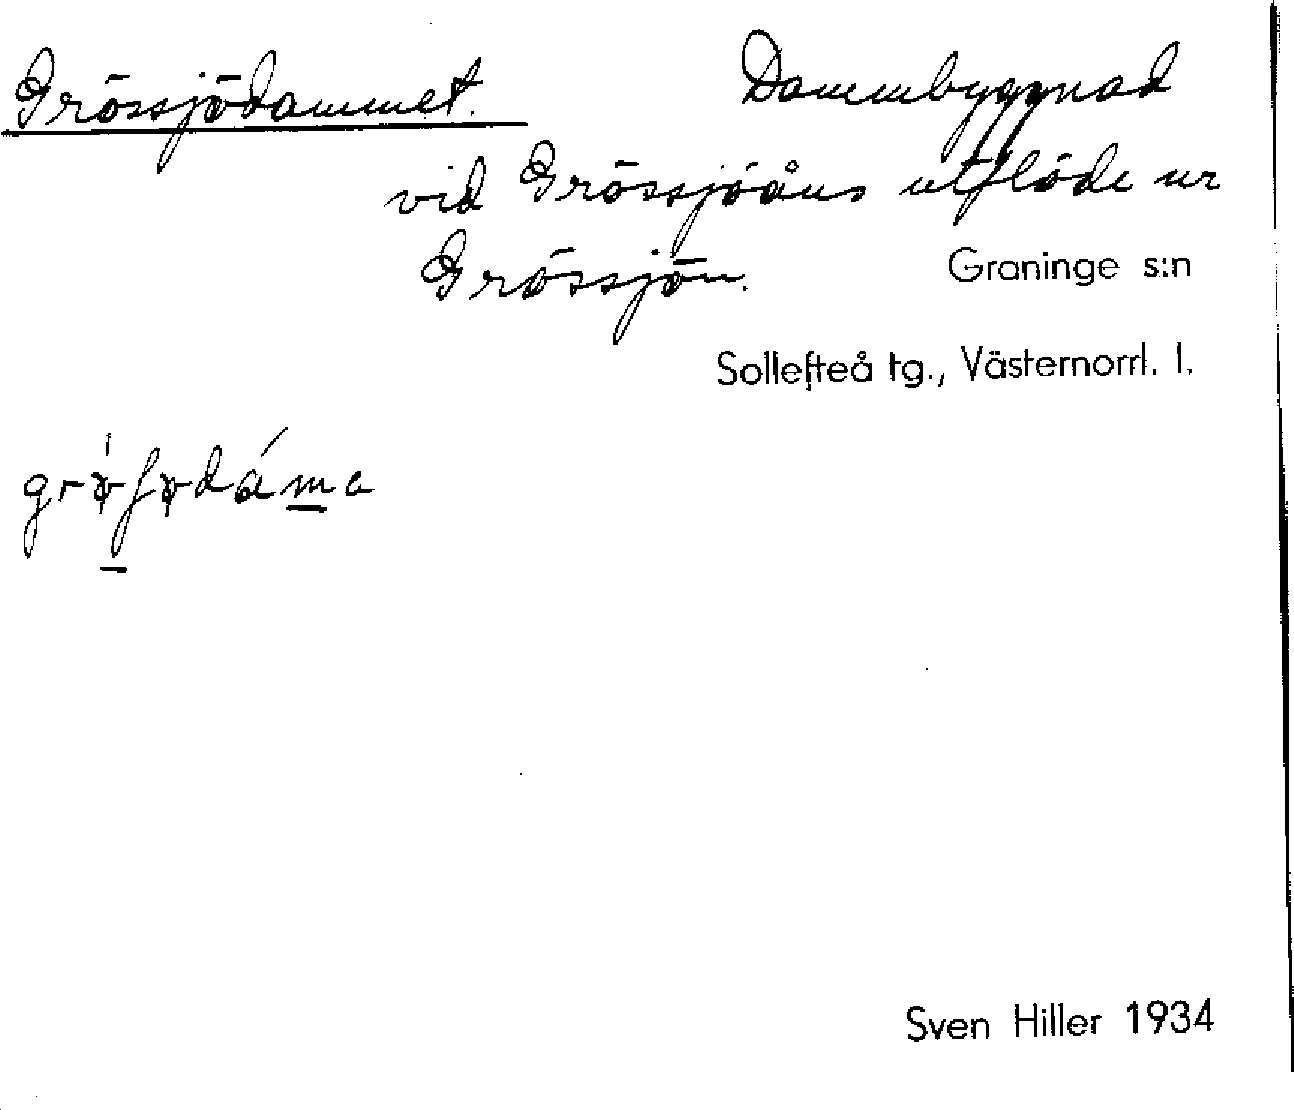 Grössjödammet. Dammbyggnad
vid Grössjöåns utflöde ur
Grössjön. Graninge s:n
Sollefteå tg., Västernorrl. l.
Sven Hiller 1934